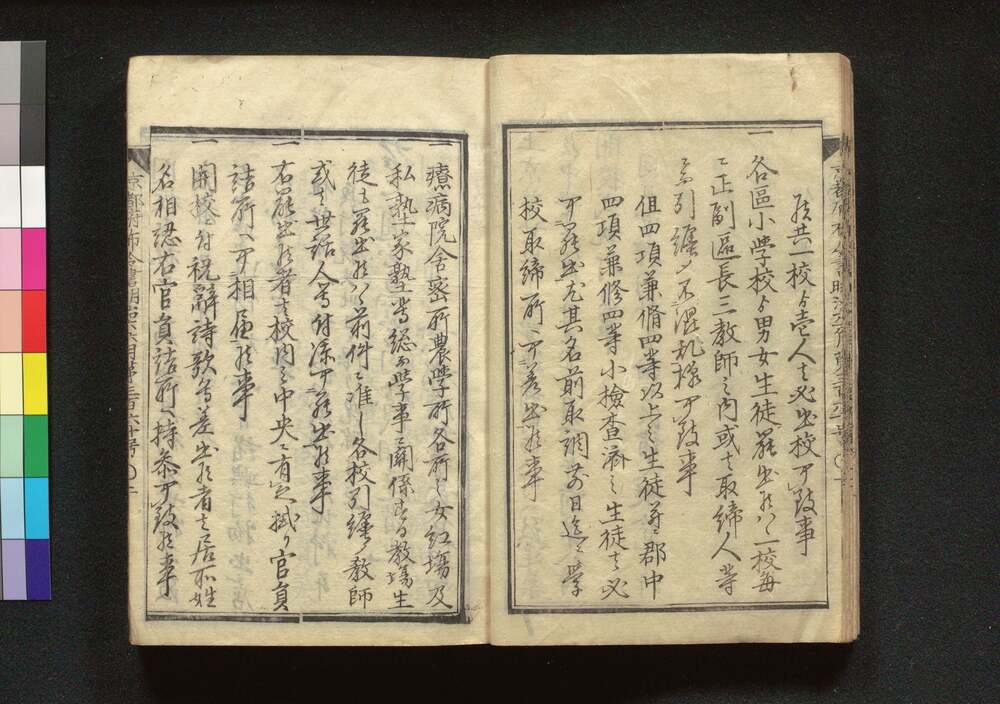 共一校ゟ壱人ハ必出校可致事
一 各區小学校ゟ男女生徒罷出候ハヽ一校毎
ニ正副區長三教師之内或ハ取締人等
ニ而引纏メ不混乱様可致事
但四項兼脩四等以上之生徒并ニ郡中
四項兼修四等小檢査済之生徒ハ必
可罷出尤其名前取調前日迄ニ学
校取締所へ可差出候事
一 療病院舎密所農学所各所之女紅場及
私塾家塾等総而学事ニ關係する教場生
徒も罷出候ハヽ前件ニ准し各校引纏メ教師
或ハ世話人等付添可罷出候事
一 右罷出候者ハ校内之中央ニ有之拭り官員
詰所へ可相届候事
一 開校ニ付祝辭詩歌等差出候者ハ居所姓
名相認右官員詰所へ持参可致候事
京都府布令書明治六六月第二百六十号〇二